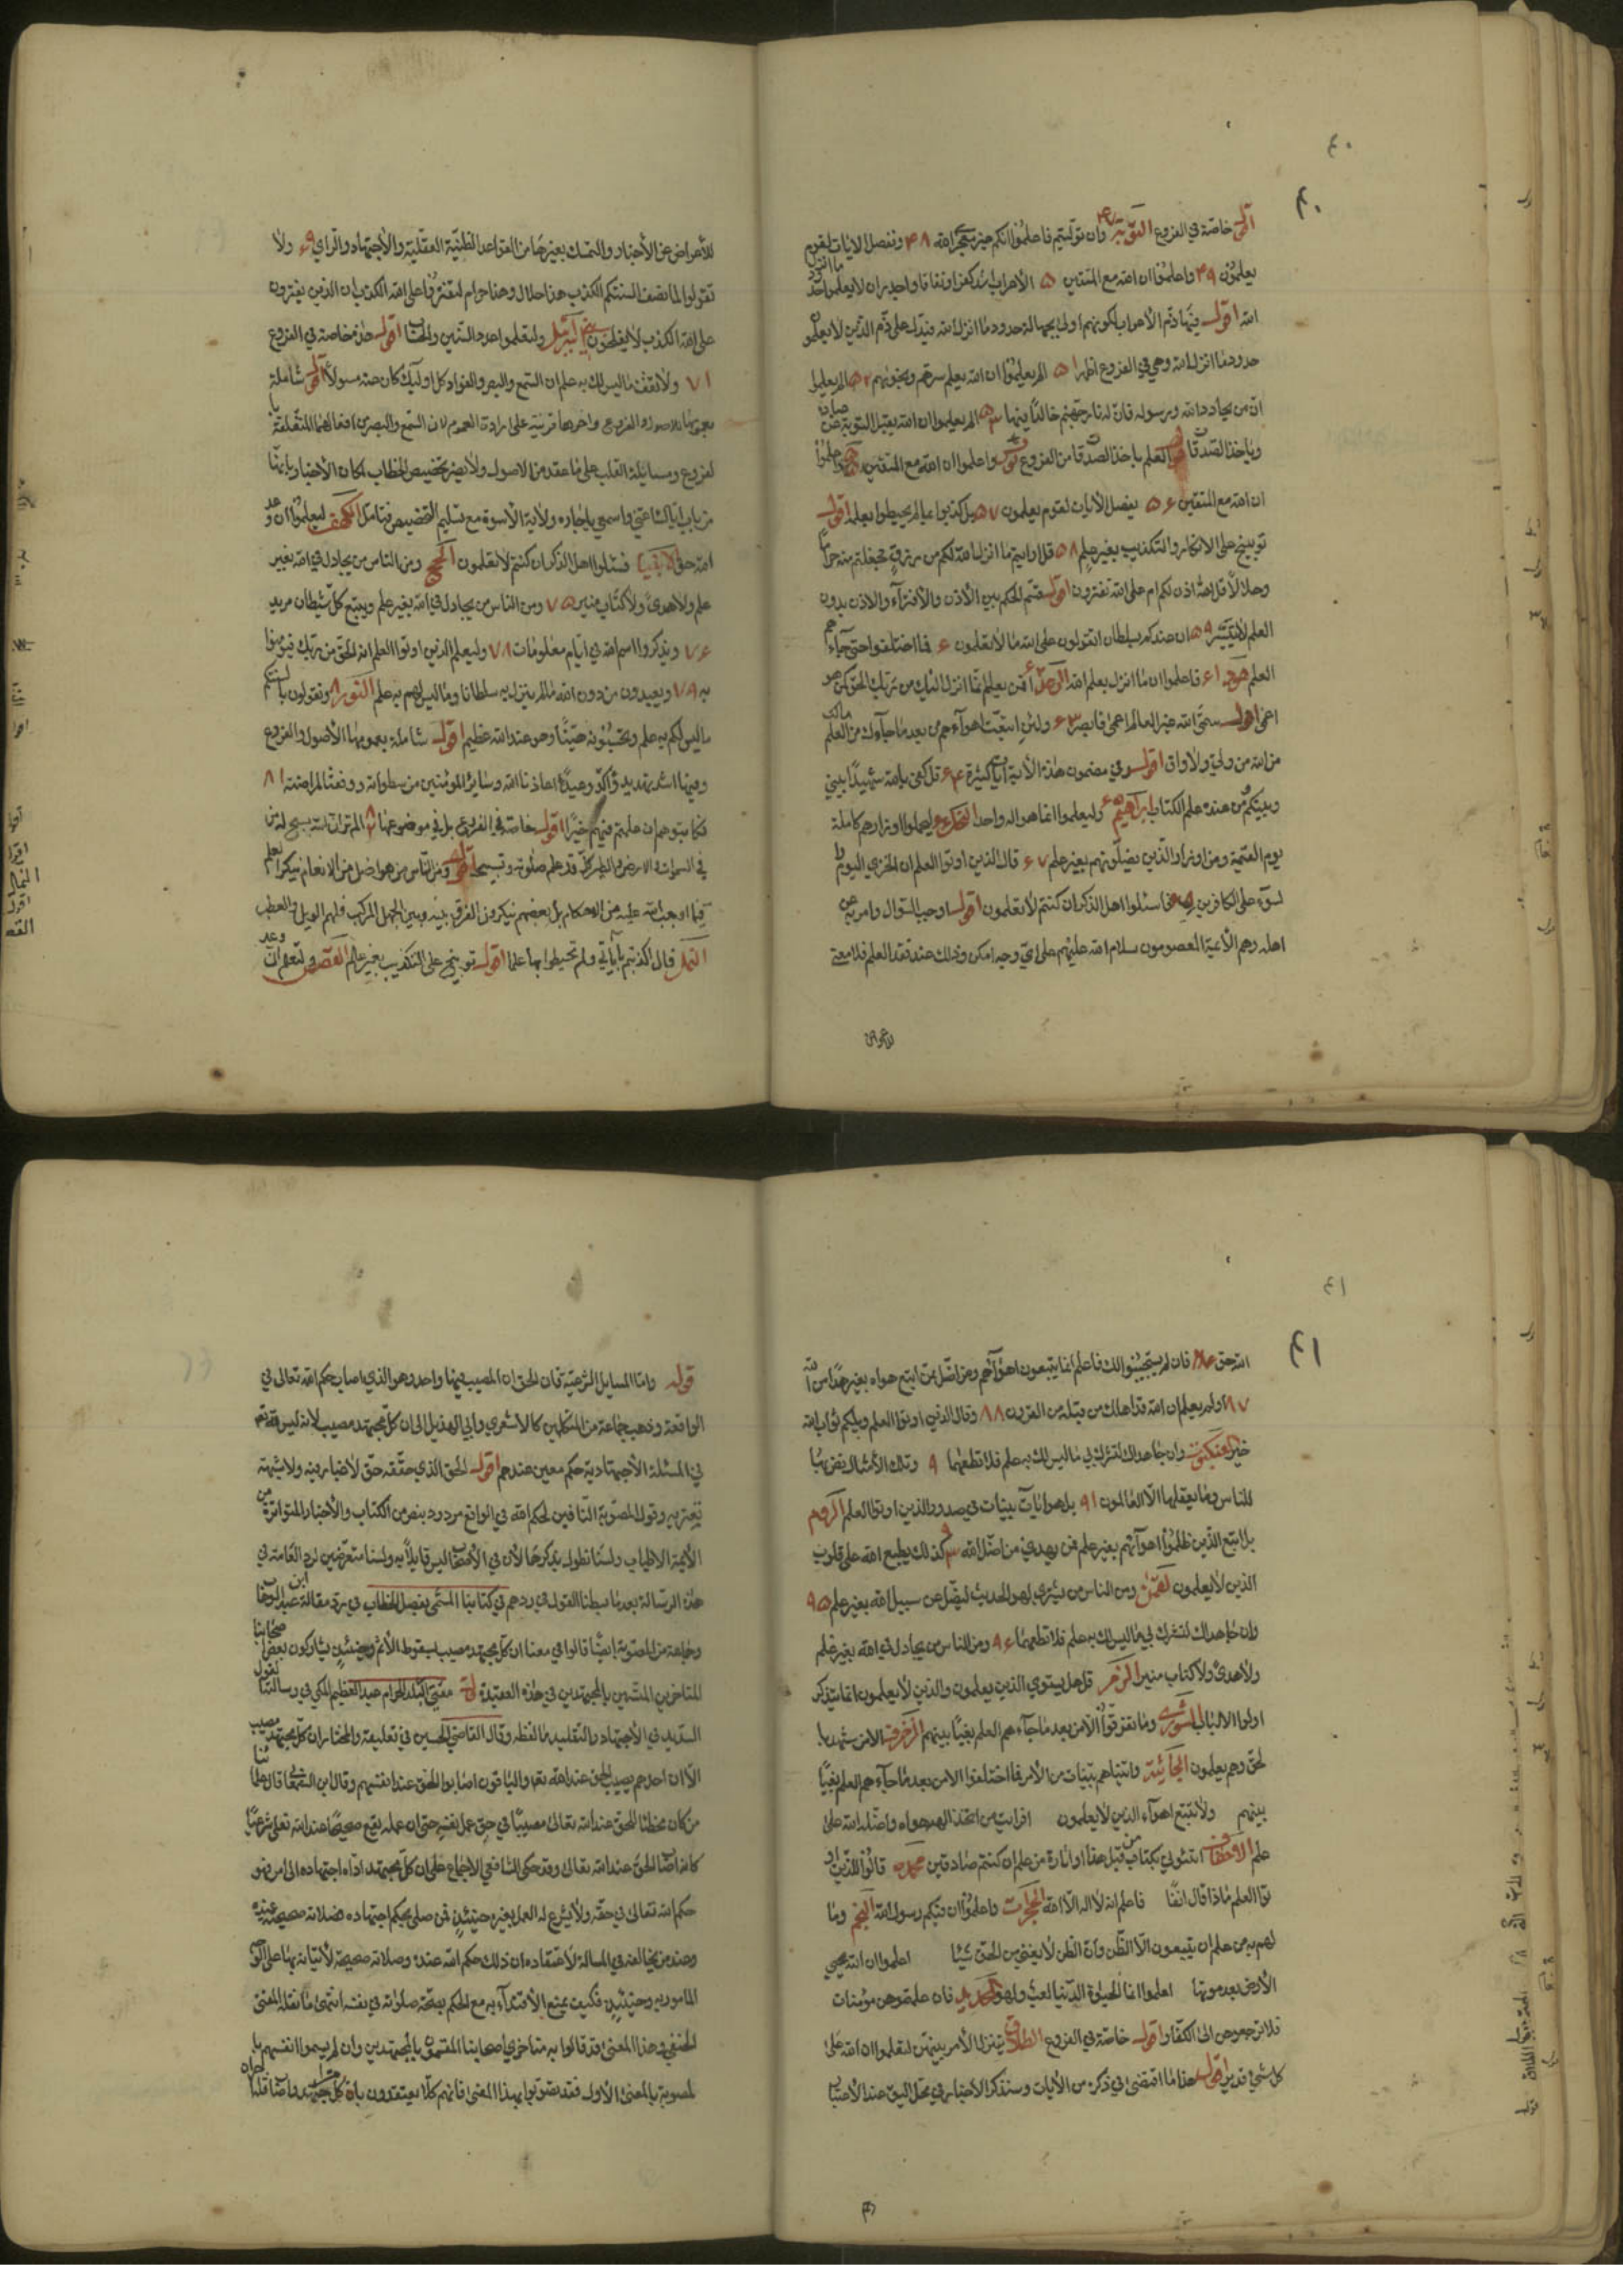 ٤٠
٤٠
اقول خاصة في الفروع التوبة ٤٧ وان توليتم فاعلموا انكم غير معجزي الله ٤٨ ونفصل الايات لقوم
يعلمون ٤٩ واعلموا ان الله مع المتقين ٥ الأعراب اشد كفرا ونفاقا واجدر ان لا يعلموا حدود ما انزل
الله اقول فيها ذم الأعراب لكونهم اولى بجهالة حدود ما انزل الله فيدل على ذم الذين لا يعلمون
حدود ما انزل الله وهي في الفروع اظهر ٥١ الم يعلموا ان الله يعلم سرهم ونجويهم ٥٢ الم يعلموا
انه من يحادد الله ورسوله فان له نار جهنم خالدا فيها ٥٣ الم يعلموا ان الله يقبل التوبة عن عباده
وياخذ الصدقات العلم باخذ الصدقات من الفروع واعلموا ان الله مع المتقين واعلموا
ان الله مع المتقين ٥٦ يفصل الأيات لقوم يعلمون ٥٧ بل كذبوا بما لم يحيطوا بعلمه اقول
توبيخ على الانكار والتكذيب بغير علم ٥٨ قل ارايتم ما انزل الله لكم من رزق فجعلتم منه حراما
وحلالا قل الله اذن لكم ام على الله تفترون اقول قسم الحكم بين الأذن والأفترآء والاذن بدون
العلم لا يتيسر ٥٩ ان عندكم بسلطان اتقولون على الله ما لا تعلمون ٦ فما اختلفوا حتى جاءهم
العلم هود ٦١ فاعلموا ان ما انزل بعلم الله الرعد ٦٢ أفمن يعلم انما انزل اليك من ربك الحق كمن هو
اعمى اقول سمى الله غير العالم اعمى فابصر ٦٣ ولئن اتبعت اهوآءهم من بعد ما جآءك من العلم مالك
من الله من ولي ولا واق اقول وفي مضمون هذه الأية ايات كثيرة ٦٤ قل كفى بالله شهيدا بيني
وبينكم ومن عنده علم الكتاب ابراهيم ٦٥ وليعلموا انما هو اله واحد النحل ٦٦ ليحملوا اوزارهم كاملة
يوم القيمة ومن اوزار الذين يضلونهم بغير علم ٦٧ قال الذين اوتوا العلم ان الخزي اليوم
لسوء على الكافرين ٦٨ فاسئلوا اهل الذكر ان كنتم لا تعلمون اقول اوجب السوال وامر به عن
اهله وهم الأئمة المعصومون سلام الله عليهم على اي وجه امكن وذلك عند فقد العلم فلا معنى
للأعراض
للأعراض عن الأخبار والتمسك بغيرها من القواعد الظنية العقلية والأجتهاد والراي ٦٩ ولا
تقولوا لما تصف السنتكم الكذب هذا حلال وهذا حرام لتفتروا على الله الكذب ان الذين يفترون
على الله الكذب لا يفلحون بني اسرائيل ولتعلموا عدد السنين والحساب اقول خاصة في الفروع
٧١ ولا تقف ما ليس لك به علم ان السمع والبصر والفواد كل اولئك كان عنه مسولا اقول شاملة
بعمومها للاصول والفروع واخرها قرينة على ارادة العموم لان السمع والبصر من افعالهما المتعلقة با
لفروع ومسائلة القلب على ما عقد من الاصول ولا يضر تخصيص الخطاب لمكان الأخبار بانها
من باب اياك اعني واسمعي يا جاره ولأية الأسوة مع تسليم التخصيص فتامل الكهف ليعلموا ان وعد
الله حق الانبيا فسئلوا اهل الذكر ان كنتم لا تعلمون الحج ومن الناس من يجادل في الله بغير
علم ولا هدى ولا كتاب منير ٧٥ ومن الناس من يجادل في الله بغير علم ويتبع كل شيطان مريد
٧٦ ويذكروا اسم الله في ايام معلومات ٧٨ وليعلم الذين اوتوا العلم انه الحق من ربك فيومنوا
به ٧٩ ويعبدون من دون الله ما لم ينزل به سلطانا وما ليس لهم به علم النور ٨ وتقولون بافواهكم
ما ليس لكم به علم وتحسبونه هينا وهو عند الله عظيم اقول شاملة بعمومها الأصول والفروع
وفيها اشد تهديد وآكد وعيد اعاذنا الله وسائر المومنين من سطواته ووفقنا لمراضته ٨١
فكاتبوهم ان علمتم فيهم خيرا اقول خاصة في الفروع بل في موضوعها الم تر ان الله يسبح له من
في السموات والارض والطير كل قد علم صلوته وتسبيحه اقول ومن الناس من هو اضل من الانعام ينكر العلم
فيما اوجب الله عليه من الاحكام بل بعضهم ينكرون الفرق بينه وبين الجهل المركب فلهم الويل والعطب
النمل قال اكذبتم بأياتي ولم تحيطوا بها علما اقول توبيخ على التكذيب بغير علم القصص ولتعلم ان وعد
٤١
٤١
الله حق ٨٦ فان لم يستجيبوا لك فاعلم انما يتبعون اهوآءهم ومن اضل ممن اتبع هواه بغير هدى من الله
٨٧ اولم يعلم ان الله قد اهلك من قبله من القرون ٨٨ وقال الذين اوتوا العلم ويلكم ثواب الله
خير العنكبوت وان جاهداك لتشرك بي ما ليس لك به علم فلا تطعهما ٩ وتلك الأمثال نضربها
للناس وما يعقلها الا العالمون ٩١ بل هو ايات بينات في صدور الذين اوتوا العلم الروم
بل اتبع الذين ظلموا اهوآئهم بغير علم فمن يهدي من اضل الله ٩٣ كذلك يطبع الله على قلوب
الذين لا يعلمون لقمن ومن الناس من يشتري لهو الحديث ليضل عن سبيل الله بغير علم ٩٥
وان جاهداك لتشرك بي ما ليس لك به علم فلا تطعهما ٩٦ ومن الناس من يجادل في الله بغير علم
ولا هدى ولا كتاب منير الزمر قل هل يستوي الذين يعلمون والذين لا يعلمون انما يتذكر
اولوا الالباب الشورى وما تفرقوا الا من بعد ما جآءهم العلم بغيا بينهم الزخرف الا من شهد با
لحق وهم يعلمون الجاثية واتيناهم بينات من الأمر فما اختلفوا الا من بعد ما جآءهم العلم بغيا
بينهم ولا تتبع اهوآء الذين لا يعلمون افرايت من اتخذ الهه هواه واضله الله على
علم الاحقاف ائتوني بكتاب من قبل هذا او اثارة من علم ان كنتم صادقين محمد قالوا للذين او
توا العلم ماذا قال انفا فاعلم انه لا اله الا الله الحجرات واعلموا ان فيكم رسول الله النجم وما
لهم به من علم ان يتبعون الا الظن وان الظن لا يغني من الحق شيئا اعلموا ان الله يحيي
الأرض بعد موتها اعلموا انما الحيوة الدنيا لعب ولهو الحديد فان علمتموهن مؤمنات
فلا ترجعوهن الى الكفار اقول خاصة في الفروع الطلاق يتنزل الأمر بينهن لتعلموا ان الله على
كل شيء قدير اقول هذا ما اقتضى في ذكره من الأيات وسنذكر الأخبار في محل اليق عند الأحتياج
قوله
قوله واما المسايل الشرعية فان الحق ان المصيب فيها واحد وهو الذي اصاب حكم الله تعالى في
الواقعة وذهب جماعة من المتكلمين كالاشعري وابي الهذيل الى ان كل مجتهد مصيب لانه ليس لله تعم
في المسئلة الأجتهادية حكم معين عندهم اقول الحق الذي حققه حق لا غبار فيه ولا شبهة
تعتريه وقول المصوبة النافين لحكم الله في الواقع مردود بنص من الكتاب والأخبار المتواترة من
الأئمة الاطياب ولسنا نطول بذكرها لأن في الأصحاب ليس قايلا به ولسنا متعرضين لرد العامة في
هذه الرسالة بعد ما بسطنا القول في ردهم في كتابنا المسمى بفصل الخطاب في رد مقالة ابن عبد الوهاب
وجماعة من المصوبة ايضا قالوا في معنا ان كل مجتهد مصيب بسقوط الأثم وحينئذ يشاركون بعض اصحابنا
المتاخرين المسمين بالمجتهدين في هذه العقيدة قال مفتي البلد الحرام عبد العظيم المكي في رسالته القول
السديد في الأجتهاد والتقليد ما لفظه وقال القاضي الحسين في تعليقه والمختار ان كل مجتهد مصيب
الا ان احدهم يصيب الحق عند الله تعم والباقون اصابوا الحق عند انفسهم وقال ابن السمعاني قال علمائنا
من كان مخطئا للحق عند الله تعالى مصيبا في حق عمل نفسه حتى ان عمله يقع صحيحا عند الله تعلى شرعا
كانه اصاب الحق عند الله تعالى وقد حكى الشافعي الاجماع على ان كل مجتهد اداه اجتهاده الى امر فهو
حكم الله تعالى في حقه ولا يشرع له العمل بغيره وحينئذ فمن صلى بحكم اجتهاده فصلاته صحيحة عنده
وعند من يخالفه في المسالة لأعتقاده ان ذلك حكم الله عنده وصلاته صحيحة لأتيانه بها على الوجه
المامور به وحينئذ فكيف يمنع الأقتدآء به مع الحكم بصحة صلواته في نفسه انتهى ما نقله المفتي
الحنفي وهذا المعنى قد قالوا به متاخري اصحابنا المتسمون بالمجتهدين وان لم يسموا انفسهم با
لمصوبة بالمعنى الأول فقد صوبوا بهذا المعنى فانهم كلا يعتقدون بان كل مجتهد